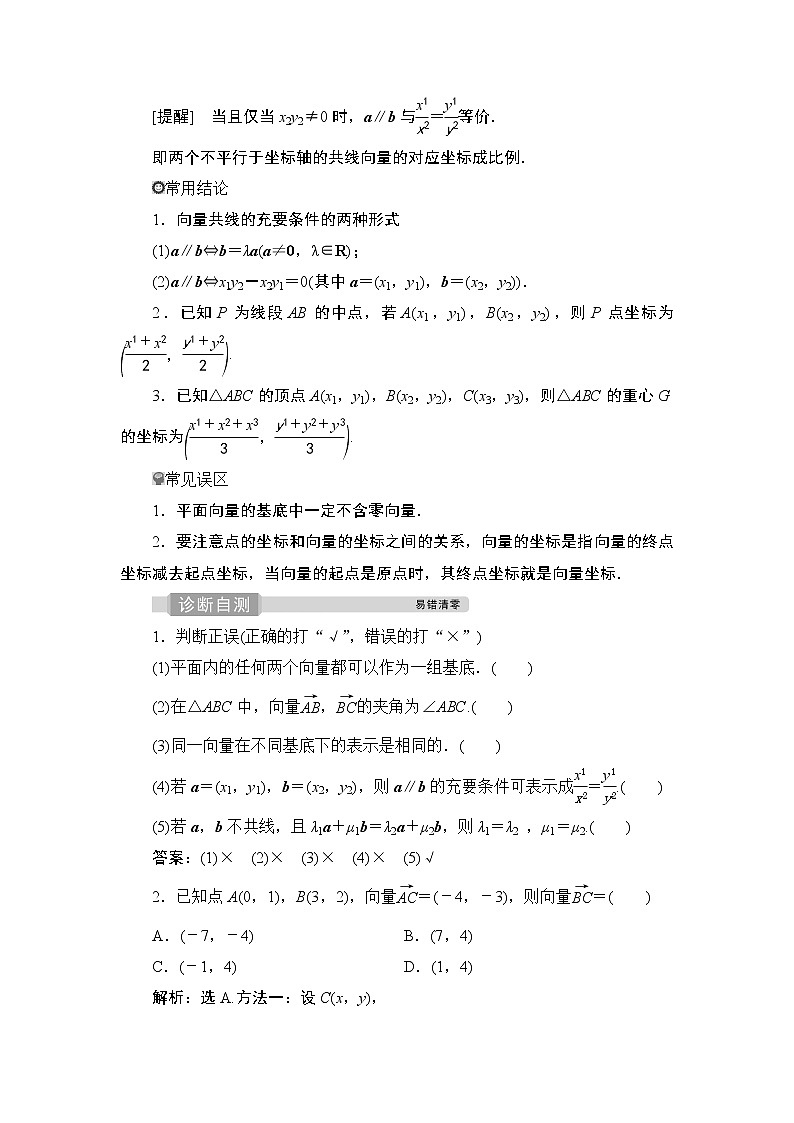 [提醒] 当且仅当 x₂y₂≠0 时，a∥b 与x1/x2=y1/y2等价．
即两个不平行于坐标轴的共线向量的对应坐标成比例．
常用结论
1．向量共线的充要条件的两种形式
(1)a∥b⇔b＝λa(a≠0，λ∈R)；
(2)a∥b⇔x₁y₂－x₂y₁＝0(其中 a＝(x₁，y₁)，b＝(x₂，y₂))．
2．已知 P 为线段 AB 的中点，若 A(x₁，y₁)，B(x₂，y₂)，则 P 点坐标为
(x1＋x2/2，y1＋y2/2).
3．已知△ABC 的顶点 A(x₁，y₁)，B(x₂，y₂)，C(x₃，y₃)，则△ABC 的重心 G
的坐标为(x1＋x2＋x3/3，y1＋y2＋y3/3).
常见误区
1．平面向量的基底中一定不含零向量．
2．要注意点的坐标和向量的坐标之间的关系，向量的坐标是指向量的终点
坐标减去起点坐标，当向量的起点是原点时，其终点坐标就是向量坐标．
诊断自测 易错清零
1．判断正误(正确的打“√”，错误的打“×”)
(1)平面内的任何两个向量都可以作为一组基底．( )
(2)在△ABC 中，向量AB→，BC→的夹角为∠ABC.( )
(3)同一向量在不同基底下的表示是相同的．( )
(4)若 a＝(x₁，y₁)，b＝(x₂，y₂)，则 a∥b 的充要条件可表示成x1/x2=y1/y2.( )
(5)若 a，b 不共线，且 λ₁a＋μ₁b＝λ₂a＋μ₂b，则 λ₁＝λ₂ ，μ₁＝μ₂.( )
答案：(1)× (2)× (3)× (4)× (5)√
2．已知点 A(0，1)，B(3，2)，向量AC→＝(－4，－3)，则向量BC→＝( )
A．(－7，－4) B．(7，4)
C．(－1，4) D．(1，4)
解析：选 A.方法一：设 C(x，y)，